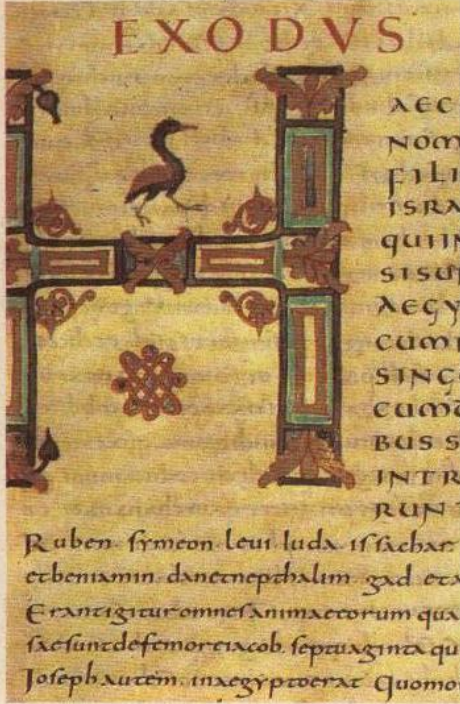 EXODVS
H
AEC
NOM
FILI
ISRA
QUIIN
SISUN
AEGY
CUMI
SINGO
CUMD
BUS S
INTR
RUNT
Ruben symeon levi Iuda issachar
etbeniamin danetnepthalim gad eta
Erantigitur omnes animaeeorum qua
saesuntdefemoreiacob septuaginta qu
Ioseph autem inaegyptoerat Quomor